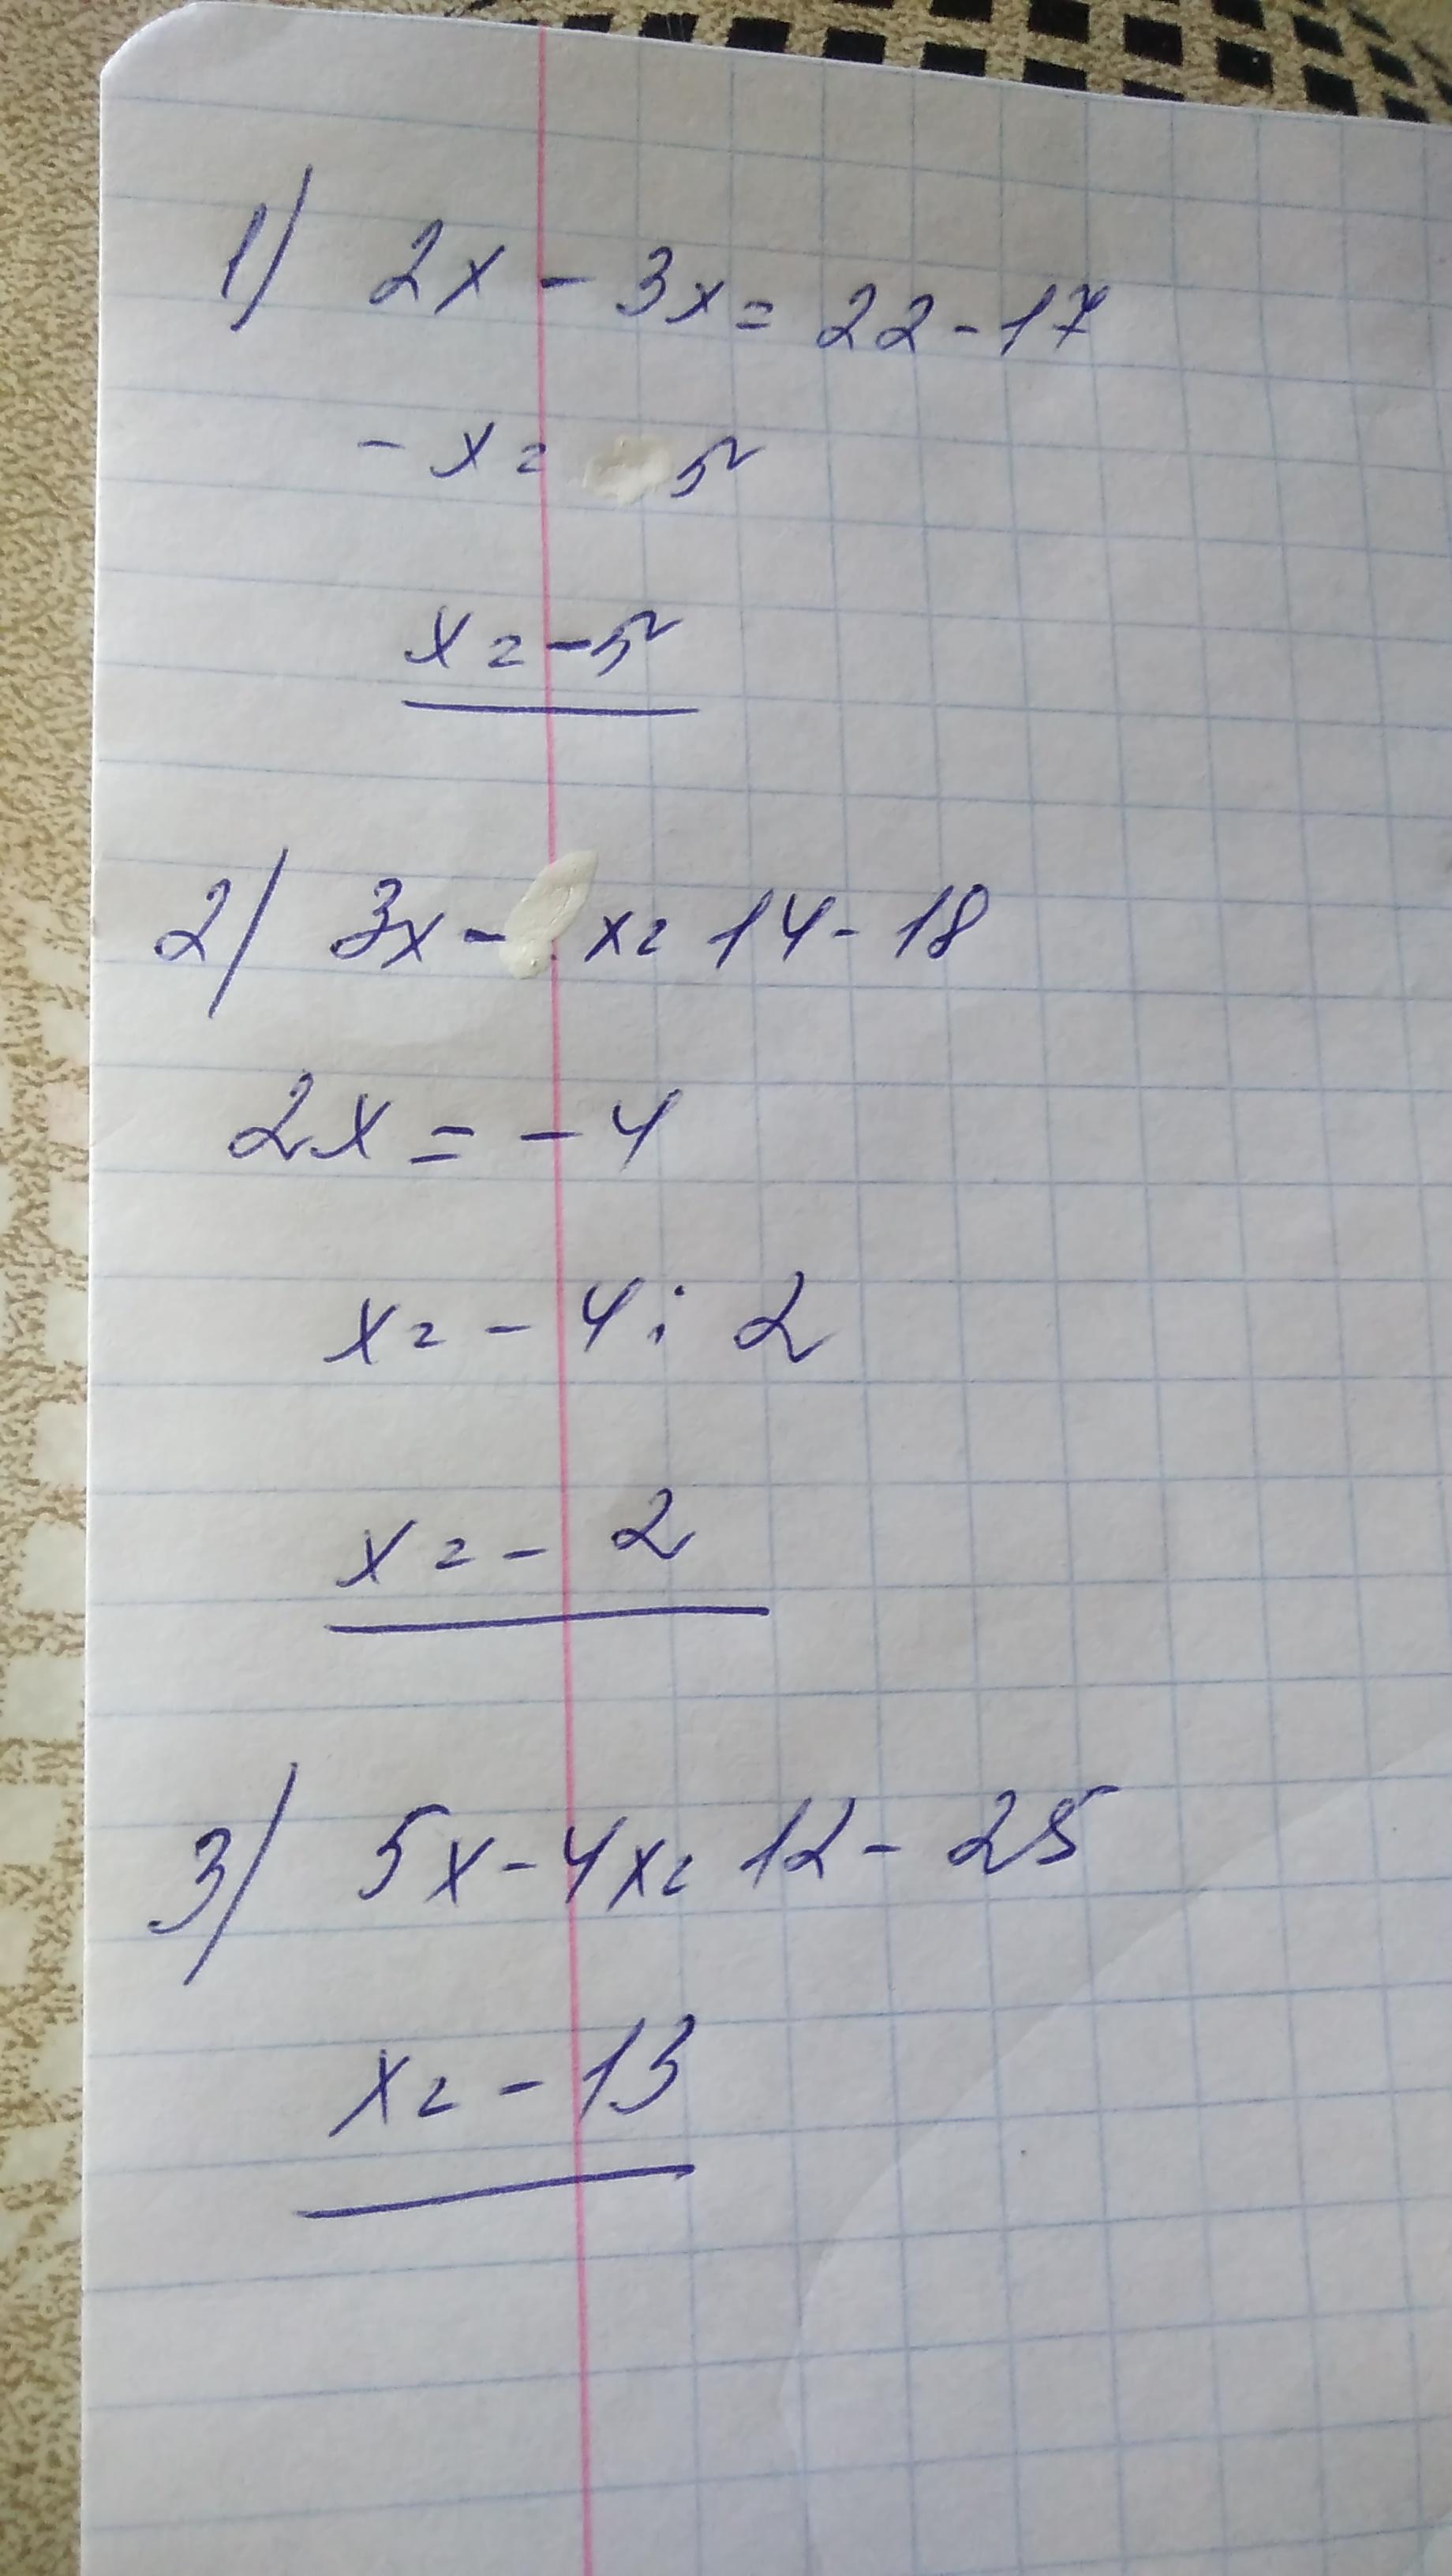 1) 2x - 3x = 22 - 17
- x = 5
x = -5
2) 3x - x = 14 - 18
2x = - 4
x = - 4 : 2
x = - 2
3) 5x - 4x = 12 - 25
x = - 13